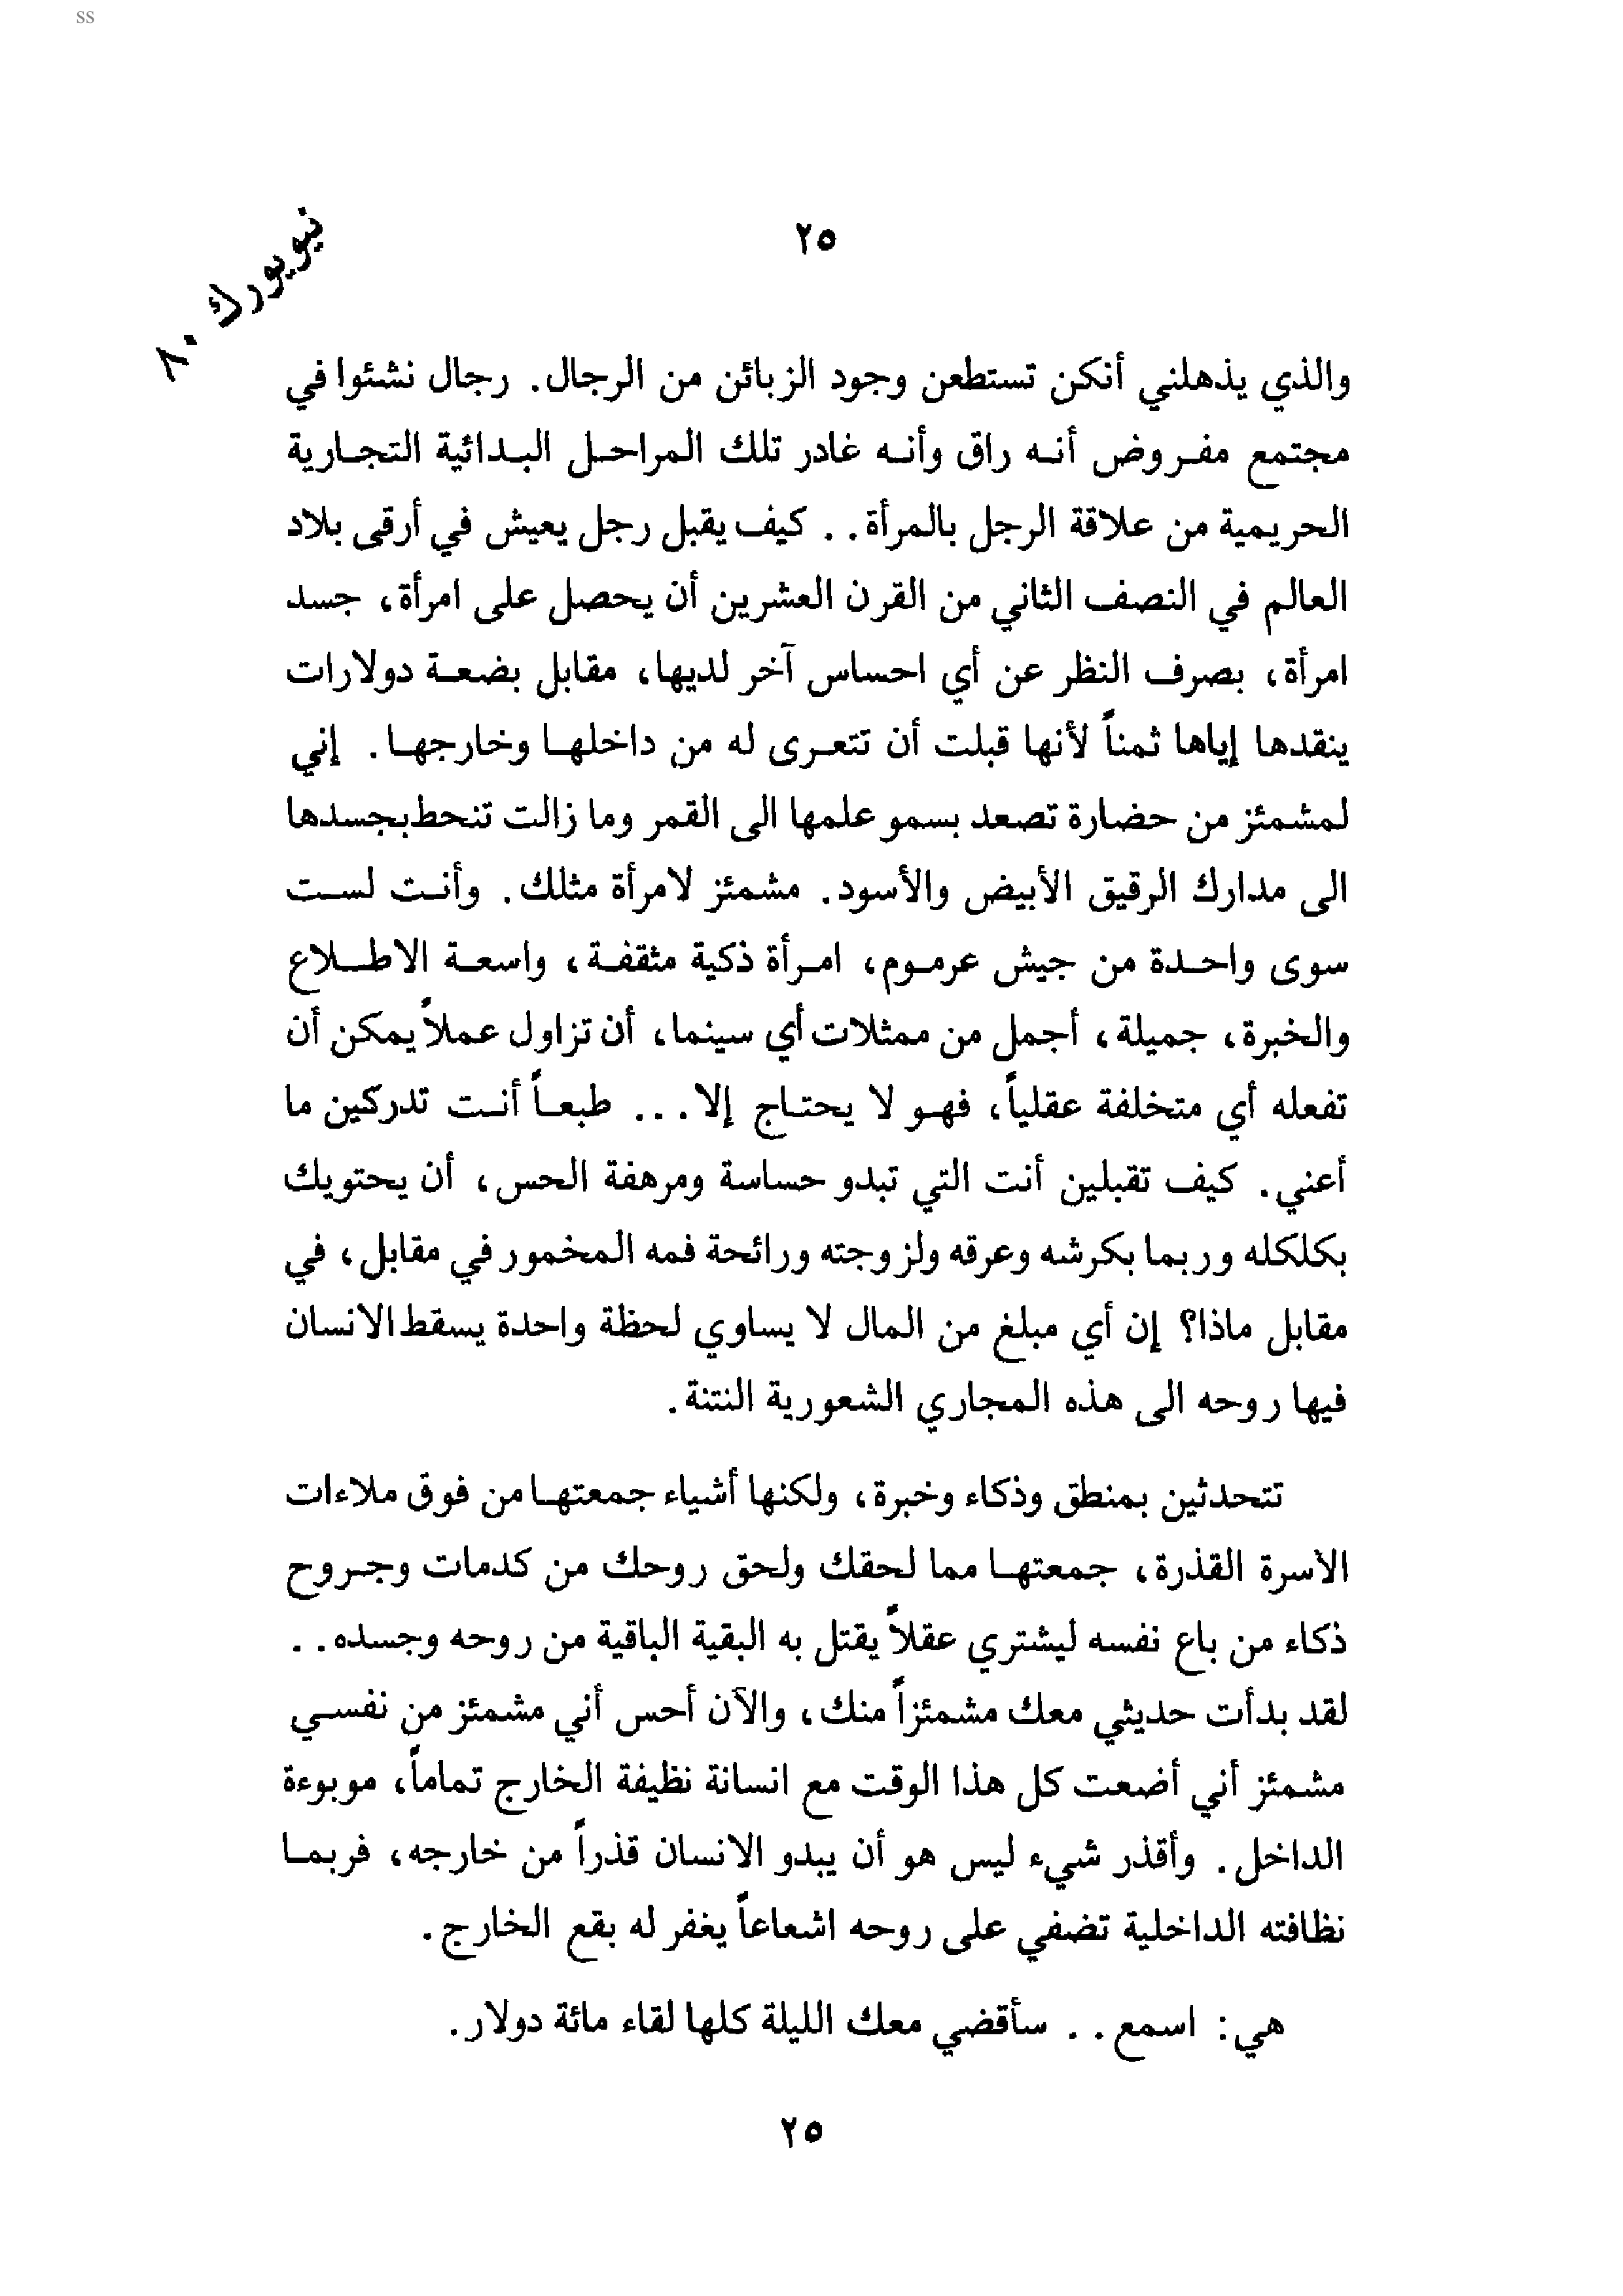 ss
٢٥
نيويورك ٨٠
والذي يذهلني أنكن تستطعن وجود الزبائن من الرجال. رجال نشئوا في
مجتمع مفروض أنه راق وأنه غادر تلك المراحل البدائية التجارية
الحريمية من علاقة الرجل بالمرأة.. كيف يقبل رجل يعيش في أرقى بلاد
العالم في النصف الثاني من القرن العشرين أن يحصل على امرأة، جسد
امرأة، بصرف النظر عن أي احساس آخر لديها، مقابل بضعة دولارات
ينقدها إياها ثمناً لأنها قبلت أن تتعرى له من داخلها وخارجها. إني
لمشمئز من حضارة تصعد بسمو علمها الى القمر وما زالت تنحط بجسدها
الى مدارك الرقيق الأبيض والأسود. مشمئز لامرأة مثلك. وأنت لست
سوى واحدة من جيش عرموم، امرأة ذكية مثقفة، واسعة الاطلاع
والخبرة، جميلة، أجمل من ممثلات أي سينما، أن تزاول عملاً يمكن أن
تفعله أي متخلفة عقلياً، فهو لا يحتاج إلا... طبعاً أنت تدركين ما
أعني. كيف تقبلين أنت التي تبدو حساسة ومرهفة الحس، أن يحتويك
بكلكله وربما بكرشه وعرقه ولزوجته ورائحة فمه المخمور في مقابل، في
مقابل ماذا؟ إن أي مبلغ من المال لا يساوي لحظة واحدة يسقط الانسان
فيها روحه الى هذه المجاري الشعورية النتنة.
تتحدثين بمنطق وذكاء وخبرة، ولكنها أشياء جمعتها من فوق ملاءات
الاسرة القذرة، جمعتها مما لحقك ولحق روحك من كدمات وجروح
ذكاء من باع نفسه ليشتري عقلاً يقتل به البقية الباقية من روحه وجسده..
لقد بدأت حديثي معك مشمئزاً منك، والآن أحس أني مشمئز من نفسي
مشمئز أني أضعت كل هذا الوقت مع انسانة نظيفة الخارج تماماً، موبوءة
الداخل. وأقذر شيء ليس هو أن يبدو الانسان قذراً من خارجه، فربما
نظافته الداخلية تضفي على روحه اشعاعاً يغفر له بقع الخارج.
هي: اسمع.. سأقضي معك الليلة كلها لقاء مائة دولار.
٢٥